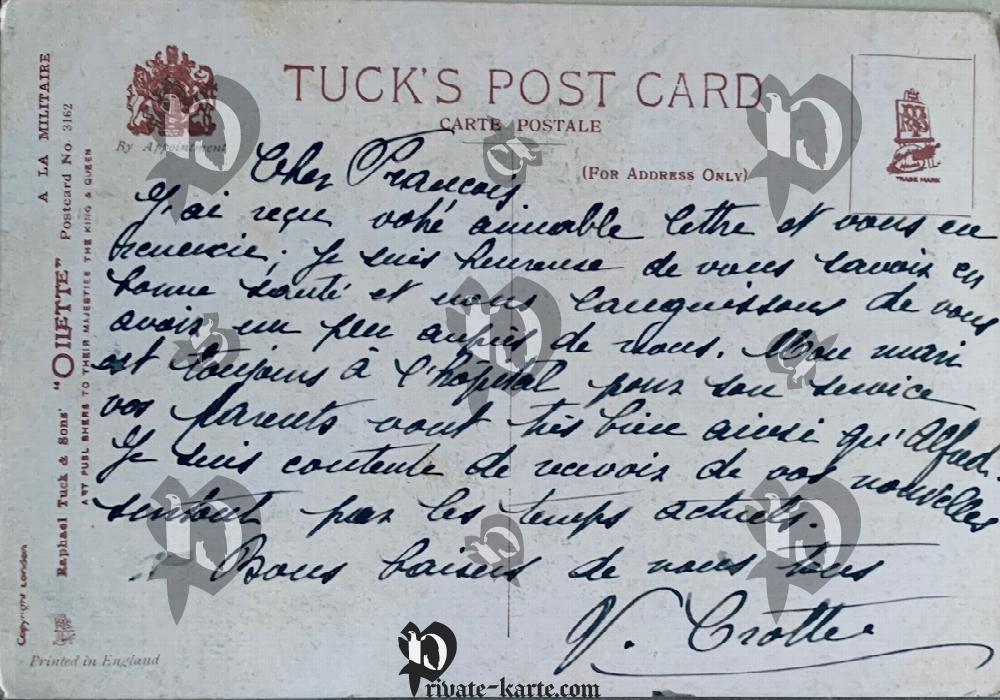 TUCK'S POST CARD
CARTE POSTALE
(FOR ADDRESS ONLY)
By Appointment
TRADE MARK
A LA MILITAIRE
Raphael Tuck & Sons' "OILETTE" Postcard No. 3162
ART PUBLISHERS TO THEIR MAJESTIES THE KING & QUEEN
Copyright London
Printed in England
Cher François
J'ai reçu votre aimable lettre et vous en
remercie; Je suis heureuse de vous savoir en
bonne santé et nous languissons de vous
avoir un peu auprès de nous. Mon mari
est toujours à l'hôpital pour son service
vos parents vont très bien ainsi qu'Alfred.
Je suis contente de recevoir de vos nouvelles
surtout par les temps actuels.
Bons baisers de nous tous
V. Crotte
Private-karte.com